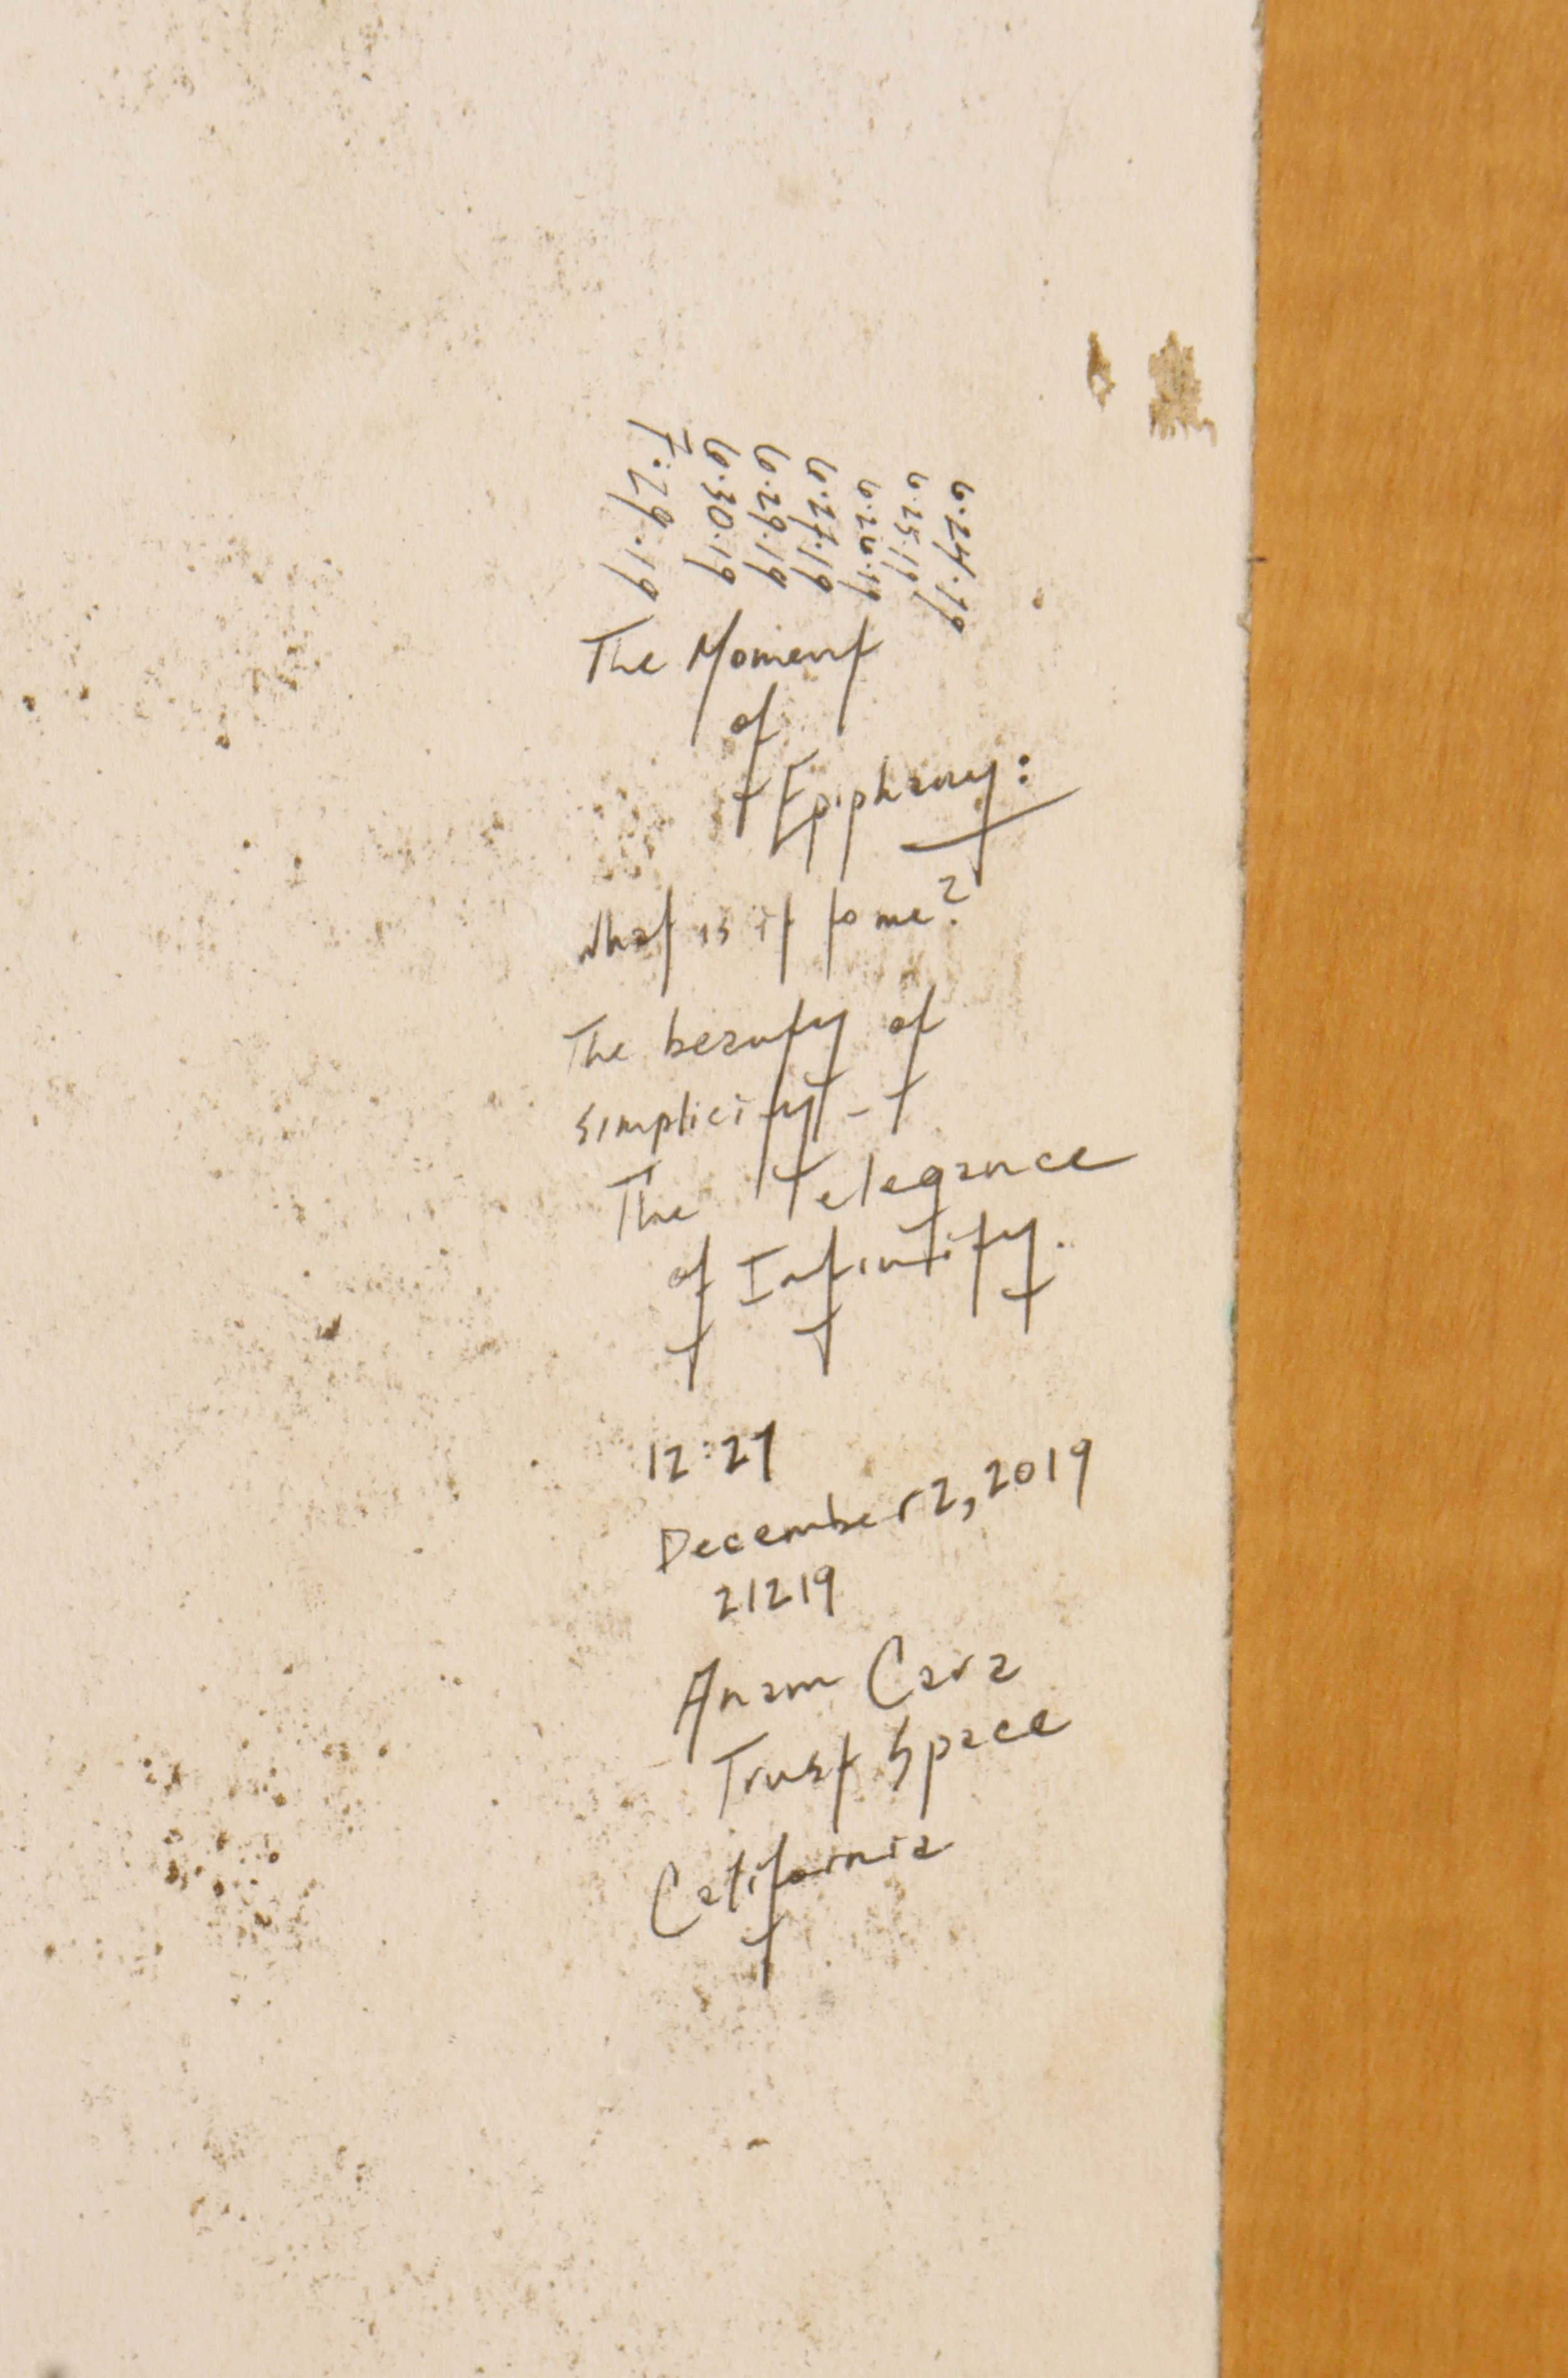 6.24.19
6.25.19
6.26.19
6.27.19
6.29.19
6.30.19
7.29.19
The Moment
of
Epiphany:
What is it to me?
The beauty of
simplicity -
The elegance
of Infinity.
12:27
December 2, 2019
21219
Anam Cara
Trust Space
California